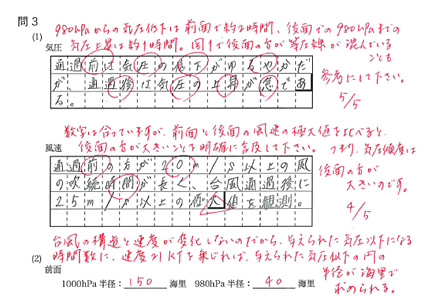 問3
980hPaからの気圧低下は前面で約2時間、後面での980hPaまでの
(1) 気圧上昇は約1時間。図1で後面の方が等圧線が混んでいる
気圧
ことも
通過前は気圧の低下がゆるやかだ
参考にして下さい。
が、通過後は気圧の上昇が急であ
5/5
る。
数字は合っていますが、前面と後面の風速の極大値を比べると、
風速
後面の方が大きいことも明確に言及して下さい。つまり、気圧傾度は
通過前の方が20m/s以上の風
後面の方が
の吹続時間が長く、台風通過後に
大きいのです。
25m/s以上の極大値を観測。
4/5
台風の構造と速度が変化しないのだから、与えられた気圧以下になる
(2) 時間数に、速度21KTを乗じれば、与えられた気圧以下の円の
前面
半径が海里で
1000hPa半径：150海里 980hPa半径：40海里
求められる。